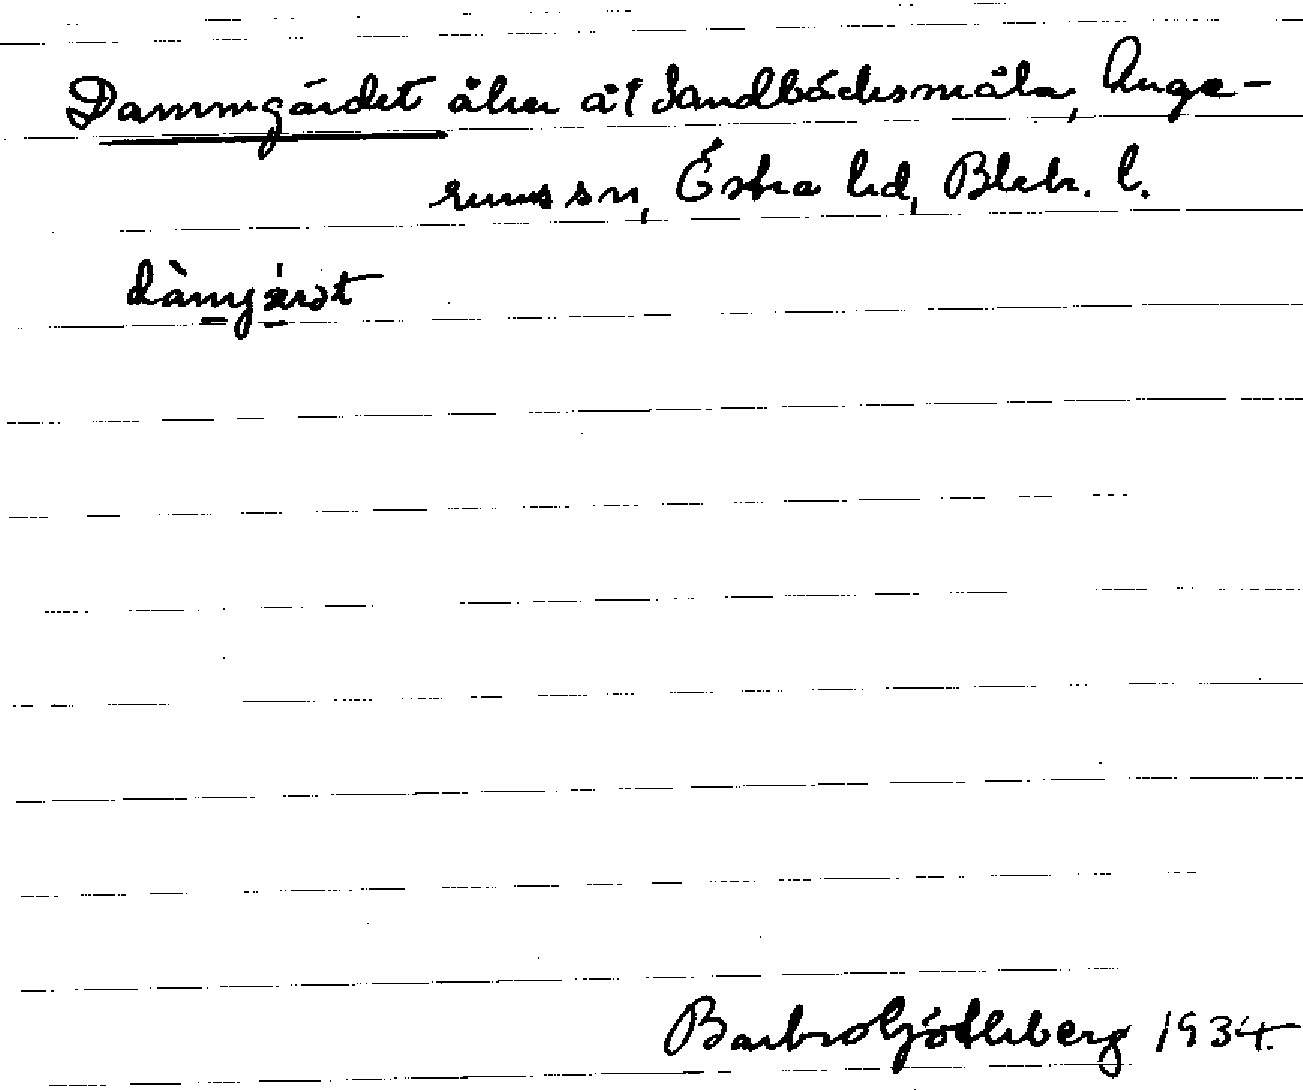 Dammgärdet åker åt Sandbäcksmåla, Ange-
rums sn, Östra hd, Blek. l.
dàmjæ̀rət
Barbro Götherberg 1934.